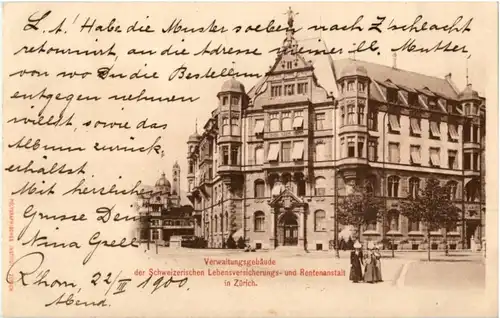 L. A.! Habe die Muster soeben nach Z'schlacht
retourniert an die Adresse meiner ill. Mutter
von wo Du die Bestellung
entgegen nehmen
willst, sowie das
Album zurück
erhältst
Mit herzlichem
Grusse Dein
Nina
22/III 1900.
Abend.
Verwaltungsgebäude
der Schweizerischen Lebensversicherungs- und Rentenanstalt
in Zürich.